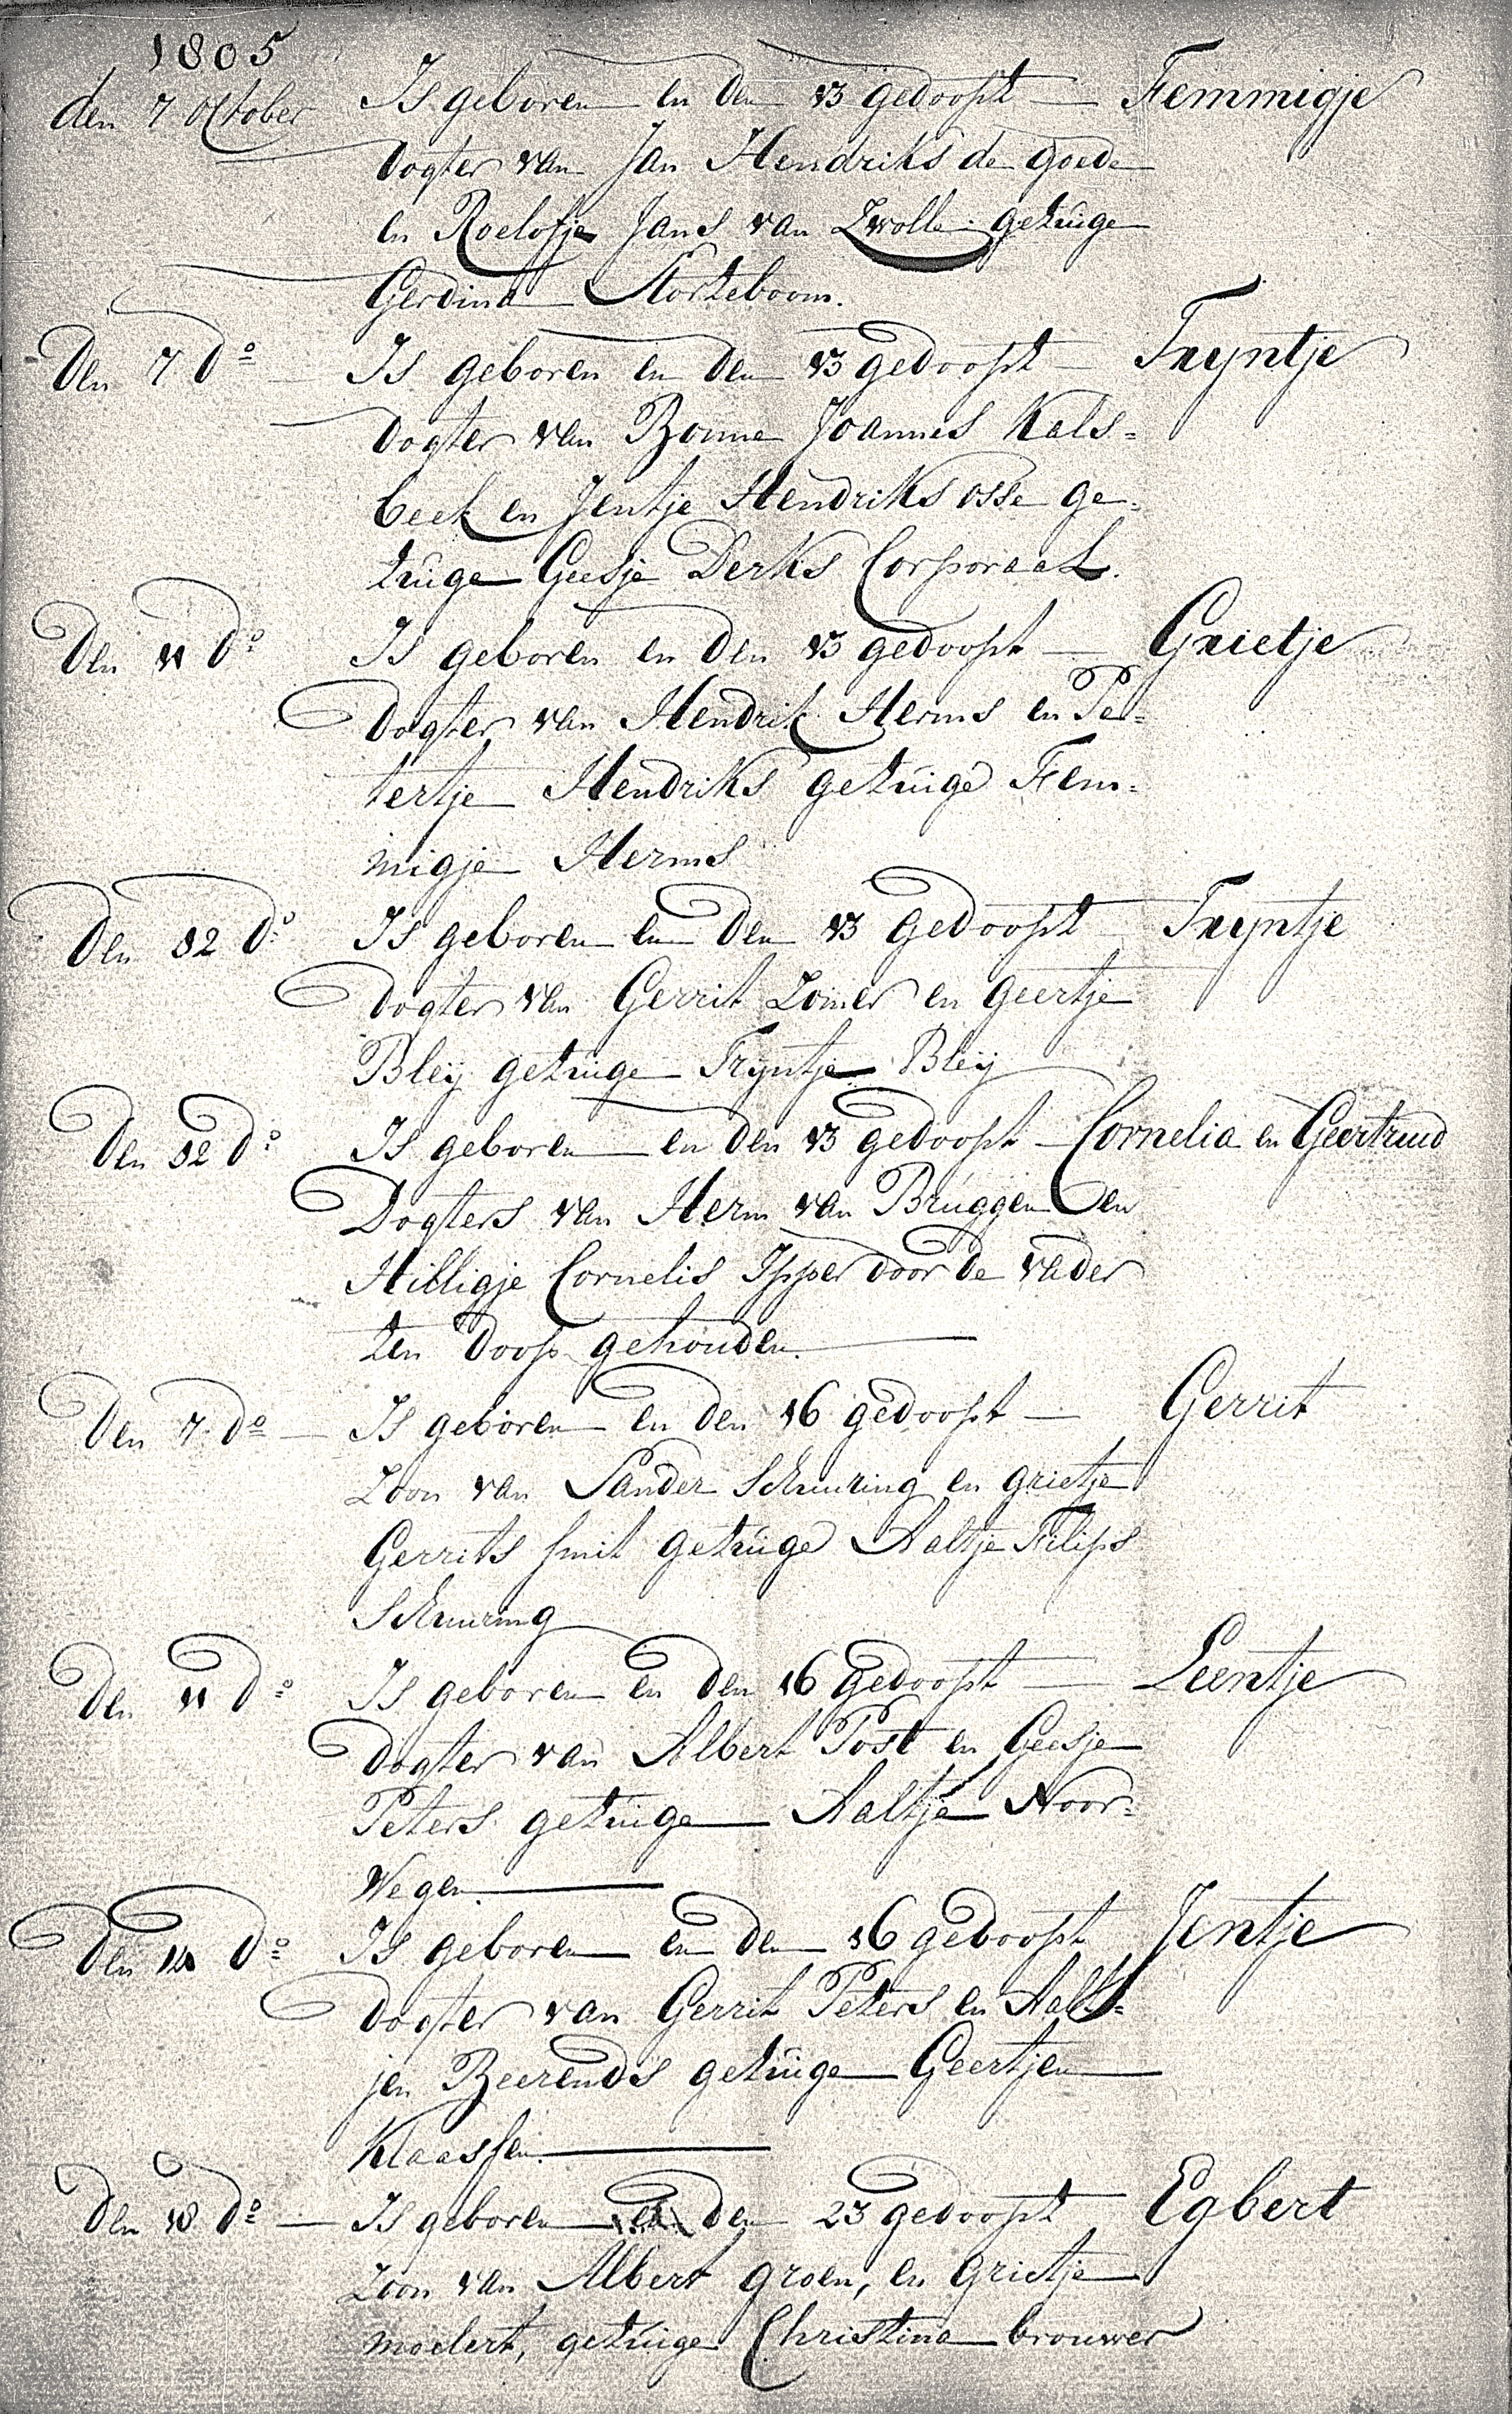 1805
den 7 October Is geboren en den 13 gedoopt — Femmigje
dogter van Jan Hendriks de goede
en Roelofje Jans van Zwolle getuige
Gerdina Storteboom.
Den 7 do Is geboren en den 13 gedoopt — Tryntje
dogter van Bonne Joannes Kals=
beek en Jentje Hendriks osse ge=
tuige Geesje Derks Corporaal.
Den 11 do Is geboren en den 13 gedoopt — Grietje
Dogter van Hendrik Herms en Pe=
tertje Hendriks getuige Fem=
migje Herms
Den 12 do Is geboren en den 13 gedoopt — Tryntje
Dogter van Gerrit Zomer en Geertje
Bleij getuige Tryntje Bleij
Den 12 do Is geboren en den 13 gedoopt — Cornelia en Geertruid
Dogters van Herm van Bruggen en
Hilligje Cornelis Ipper door de vader
ten doop gehouden.
Den 7 do — Is geboren en den 16 gedoopt — Gerrit
Zoon van Sander Schuuring en grietje
Gerrits smit getuige Aaltje Filips
Schuuring
Den 11 do Is geboren en den 16 gedoopt — Leentje
Dogter van Albert Post en Geesje
Peters getuige Aaltje Noor=
Wegen.
Den 14 do Is geboren en den 16 gedoopt Jentje
Dogter van Gerrit Peters en Aalt=
jen Beerends getuige Geertjen
Klaassen.
Den 18 do — Is geboren en den 23 gedoopt Egbert
Zoon van Albert groen, en grietje
moelert, getuige Christina brouwer